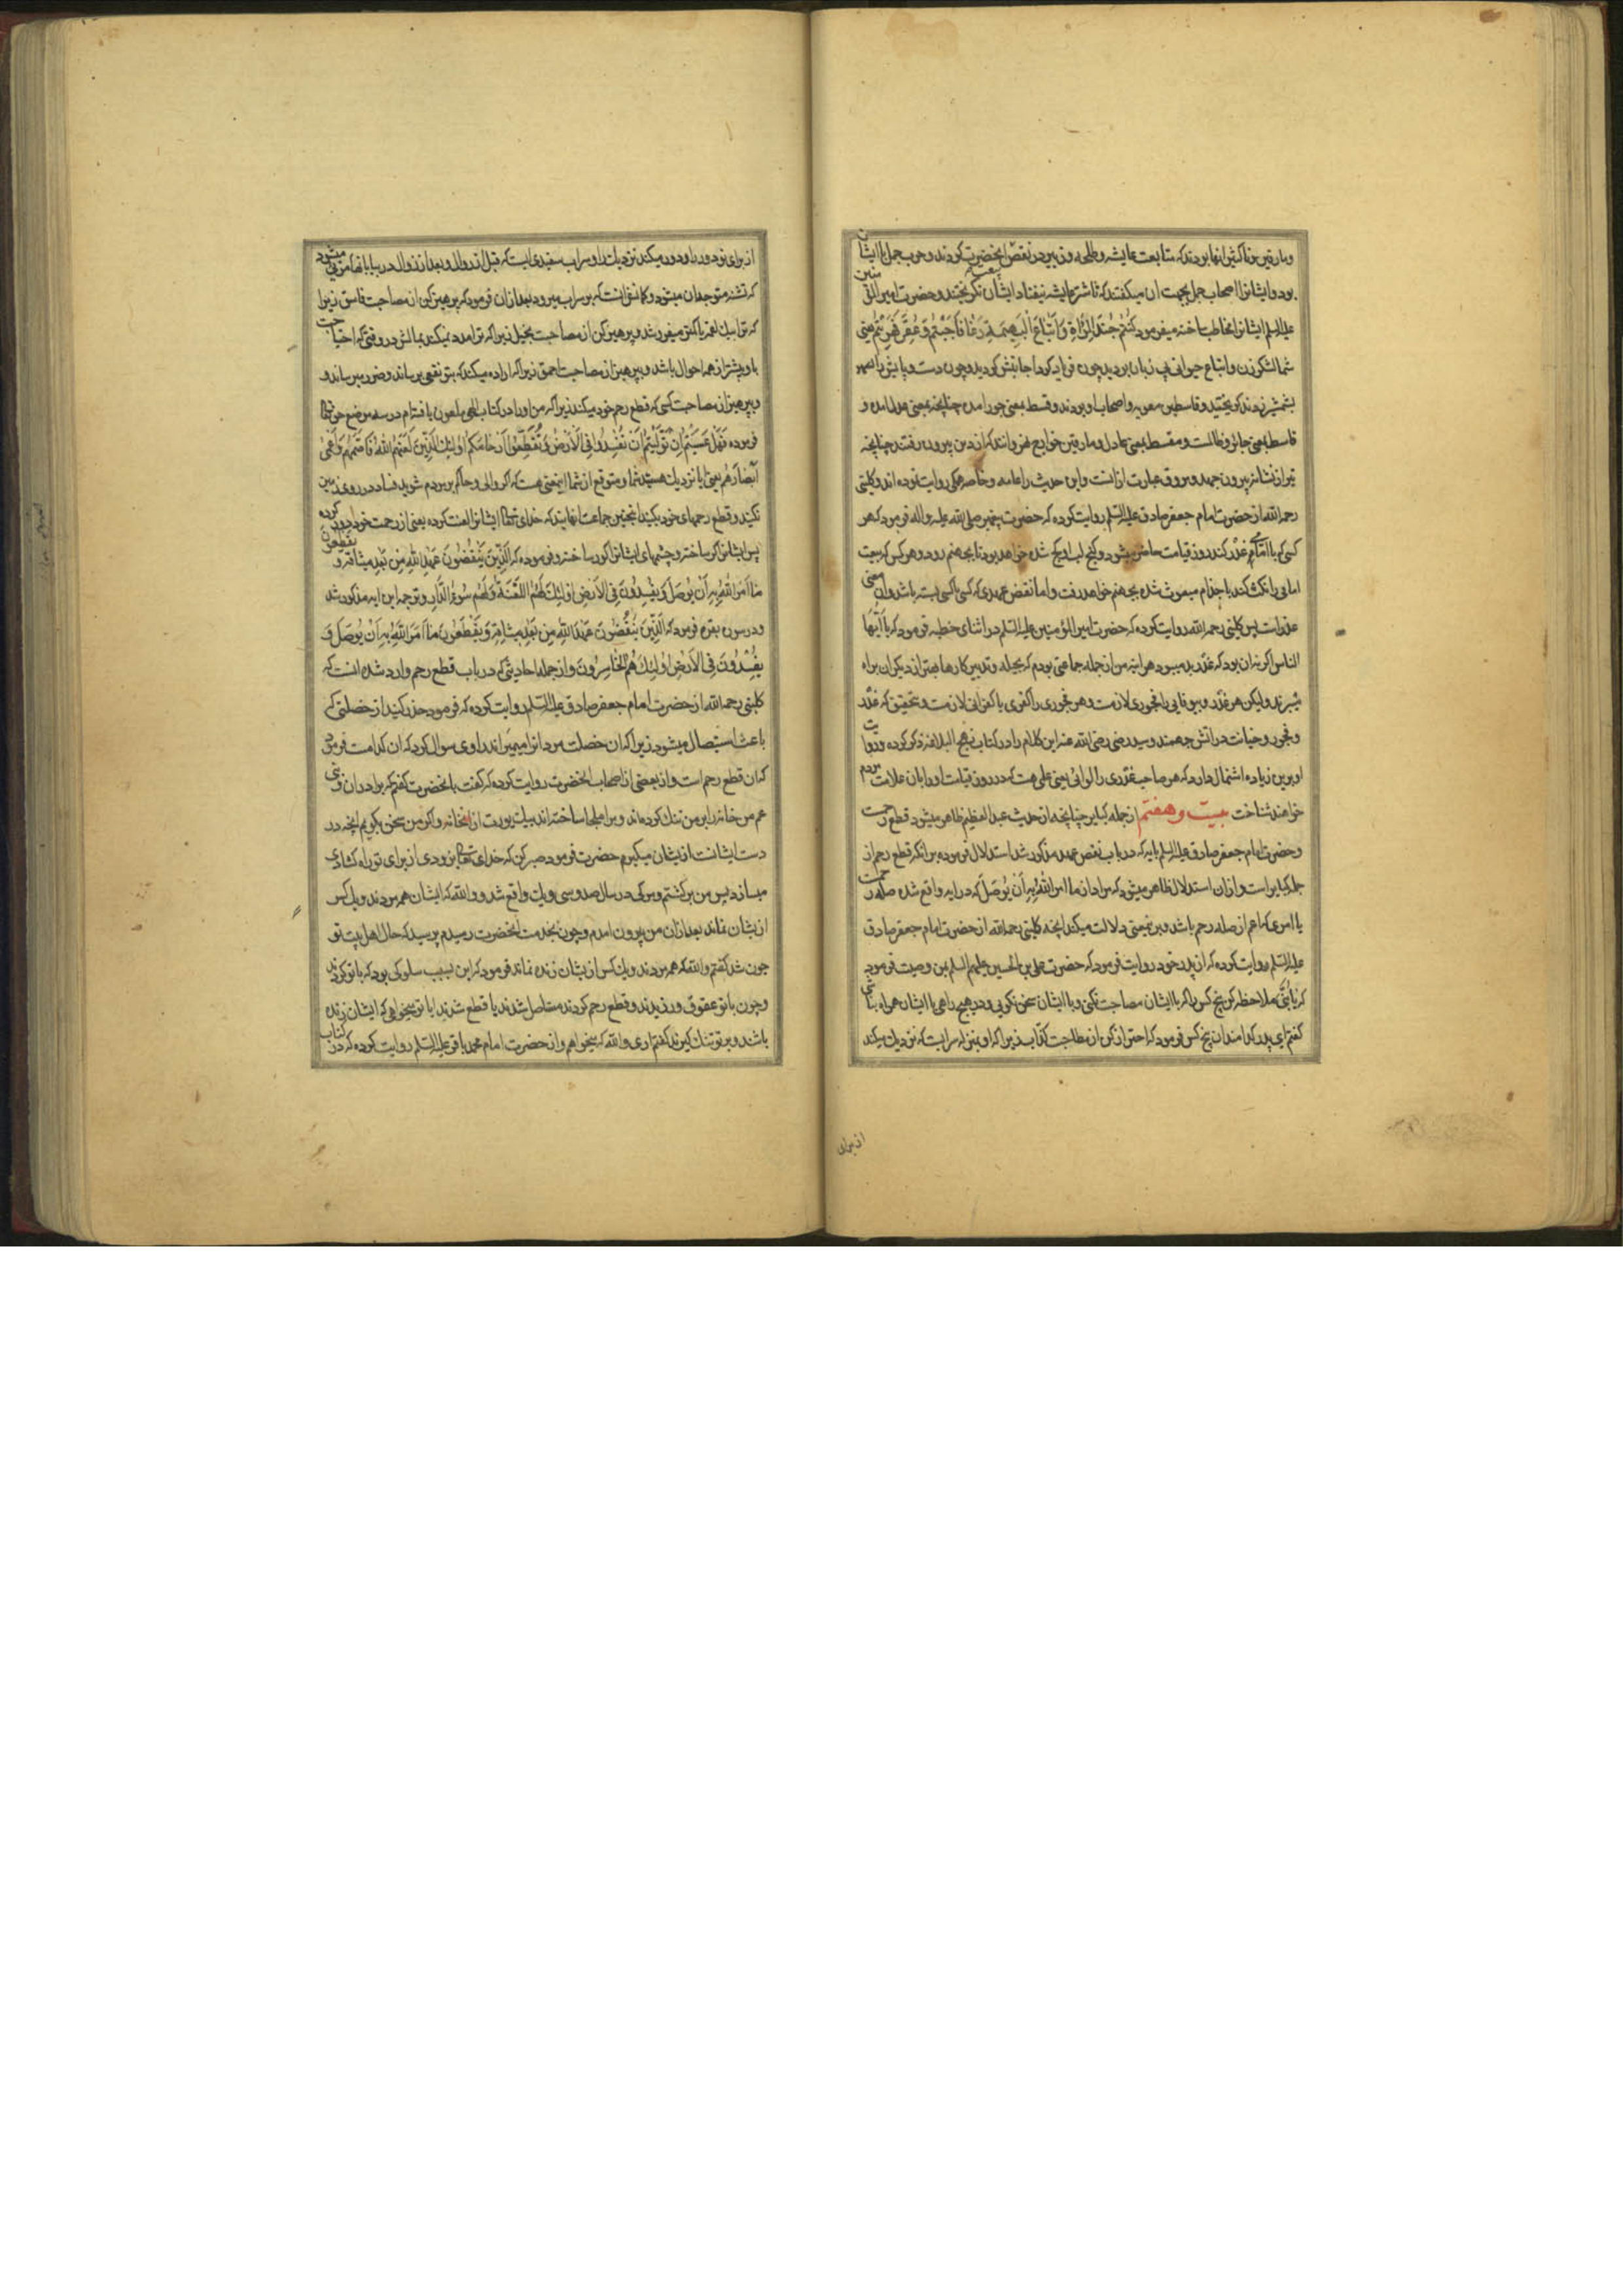 و مارقین و ناکثین انها بودند که متابعت عایشه و طلحه و زبیر در نقض بیعت انحضرت کردند و حرب جمل با ایشان
بود و ایشانرا اصحاب جمل بجهت ان میگفتند که تا شتر عایشه نیفتاد ایشان نکریختند و حضرت امیرالمؤمنین
علیه السلم ایشانرا مخاطب ساخته میفرمود کُنتُم جُندَ المَرأةِ وَ اَتباعَ البَهیمَةِ رَغا فَاَجَبتُم وَ عُقِرَ فَهَرَبتُم یعنی
شما لشکر زن و اتباع حیوانی بی زبان بودید چون فریاد کرد اجابتش کردید و چون دست و پایش را
بشمشیر زدند کریختید و قاسطین معویه و اصحاب او بودند و قسط بمعنی جور امده چنانچه بمعنی عدل امده و
قاسط بمعنی جائر و ظالمست و مقسط بمعنی عادل و مارقین خوارج نهروانند که از دین بیرون رفتند چنانچه
تیر از نشانه بیرون جهد و مروق عبارت از انست و این حدیث را عامه و خاصه همکی روایت نموده اند و کلینی
رحمه الله از حضرت امام جعفر صادق علیه السلم روایت کرده که حضرت پیغمبر صلی الله علیه و اله فرمود که هر
کسی که با امامی غدر کند روز قیامت حاضر میشود و کنج لب او کج شده خواهد بود تا بجهنم رود و هر کس که بیعت
امامی را نکث کند با جذام مبعوث شده بجهنم خواهد رفت و اما نقض عهدی که کسی با کسی بسته باشد و ان بمعنی
غدر است پس کلینی رحمه الله روایت کرده که حضرت امیر المؤمنین علیه السلم در اثنای خطبه فرمود که یا اَیُّهَا
الناس اکر نه ان بود که غدر بد میبود هر اینه من از جمله جماعتی بودم که بحیله و تدبیر کارها بهتر از دیکران براه
میبرند ولیکن هر غدر و بیوفایی را فجوری لازمست و هر فجوری را کفری یا کفرانی لازمست و بتحقیق که غدر
و فجور و خیانت در اتش جهنمند و سید رضی رضی الله عنه این کلام را در کتاب نهج البلاغه ذکر کرده و روایت
او برین زیاده اشتمال دارد که هر صاحب غدری را لوائی یعنی علمی هست که در روز قیامت او را بان علامت مردم
خواهند شناخت بیست و هفتم از جمله کبایر چنانچه از حدیث عبد العظیم ظاهر میشود قطع رحمست
و حضرت امام جعفر صادق علیه السلم بایه که در باب نقض عهد مذکور شد استدلال فرموده برانکه قطع رحم از
جمله کبایر است و ازان استدلال ظاهر میشود که مراد از ما امر اللّٰهُ بِهِ اَن یُوصَل که در ایه واقع شده صله رحمست
یا امری که اعم از صله رحم باشد و برین معنی دلالت میکند انچه کلینی رحمه الله از حضرت امام جعفر صادق
علیه السلم روایت کرده که از پدر خود روایت فرمود که حضرت علی بن الحسین علیهم السلم بمن وصیت فرمود
که یا بُنَیَّ ملاحظه کن پنج کس را که با ایشان مصاحبت نکنی و با ایشان سخن نکویی و در هیچ راهی با ایشان همراه نباشی
کفتم ای پدر کدامند ان پنج کس فرمود که احتراز کن از مصاحبت کذّاب زیرا که او بمنزله سرابست که نزدیک میکند
از برای
از برای تو دور را و دور میکند نزدیک را و سراب سفیدی ایست که قبل از زوال و بعد از زوال در بیابانها مرئی میشود
که تشنه متوجه ان میشود و کمانش انست که بر سر اب میرود بعد ازان فرمود که پرهیز کن از مصاحبت فاسق زیرا
که ترا بیک لقمه یا کمتر میفروشد و پرهیز کن از مصاحبت بخیل زیرا که ترا مدد نمیکند بمالش در وقتی که احتیاجت
باو بیشتر از همه احوال باشد و بپرهیز از مصاحبت احمق زیرا که اراده میکند که بتو نفعی برساند و ضرر میرساند و
بپرهیز از مصاحبت کسی که قطع رحم خود میکند زیرا که من او را در کتاب الهی ملعون یافته‌ام در سه موضع حق تعالی
فرموده فَهَل عَسَیتُم اِن تَوَلَّیتُم اَن تُفسِدُوا فِی الاَرضِ وَ تُقَطِّعُوا اَرحَامَکُم اُولئِکَ الَّذِینَ لَعَنَهُمُ اللّٰهُ فَاَصَمَّهُم وَ اَعمٰی
اَبصَارَهُم یعنی ایا نزدیک هستید شما و متوقع از شما اینمعنی هست که اکر والی و حاکم بر مردم شوید فساد در روی زمین
نکنید و قطع رحمهای خود بکنید اینچنین جماعت انهایند که خدای تعالی ایشانرا لعنت کرده یعنی از رحمت خود دور کرده
پس ایشانرا کر ساخته و چشمهای ایشانرا کور ساخته و فرموده که الَّذِینَ یَنقُضُونَ عَهدَ اللّٰهِ مِن بَعدِ مِیثَاقِهِ وَ یَقطَعُونَ
مَا اَمَرَ اللّٰهُ بِهِ اَن یُوصَلَ وَ یُفسِدُونَ فِی الاَرضِ اُولئِکَ لَهُمُ اللَّعنَةُ وَ لَهُم سُوءُ الدَّارِ و ترجمه این ایه مذکور شد
و در سوره بقره فرمود که الَّذِینَ یَنقُضُونَ عَهدَ اللّٰهِ مِن بَعدِ مِیثَاقِهِ وَ یَقطَعُونَ مَا اَمَرَ اللّٰهُ بِهِ اَن یُوصَلَ وَ
یُفسِدُونَ فِی الاَرضِ اُولئِکَ هُمُ الخَاسِرُونَ و از جمله احادیثی که در باب قطع رحم وارد شده انست که
کلینی رحمه الله از حضرت امام جعفر صادق علیه السلم روایت کرده که فرمود حذر کنید از خصلتی که
باعث استیصال میشود زیرا که ان خصلت مردانرا میمیراند راوی سوال کرد که ان کدامست فرمود
که ان قطع رحم است و از بعضی از اصحاب انحضرت روایت کرده که کفت بانحضرت کفتم که برادران و بنی
عم من خانه را بر من تنک کرده‌اند و مرا ملجا ساخته اند بیک بیوت از انخانه و اکر من سخن بکویم انچه در
دست ایشانست از یشان میکیرم حضرت فرمود صبر کن که خدای تعالی بزودی از برای تو راه کشادی
میسازد پس من برکشتم و مرکی در سال صد و سی و یک واقع شد و والله که ایشان همه مردند و یک کس
از یشان نماند بعد ازان من بیرون امدم و چون بخدمت انحضرت رسیدم پرسید که حال اهل بیت تو
چون شد کفتم والله که همه مردند و یک کس از یشان زنده نماند فرمود که این بسبب سلوکی بود که با تو کردند
و چون با تو عقوق ورزیدند و قطع رحم کردند مستاصل شدند یا قطع شدند ایا تو میخواهی که ایشان زنده
باشند و بر تو تنک کیرند کفتم اری والله که میخواهم و از حضرت امام محمد باقر علیه السلم روایت کرده که در کتاب